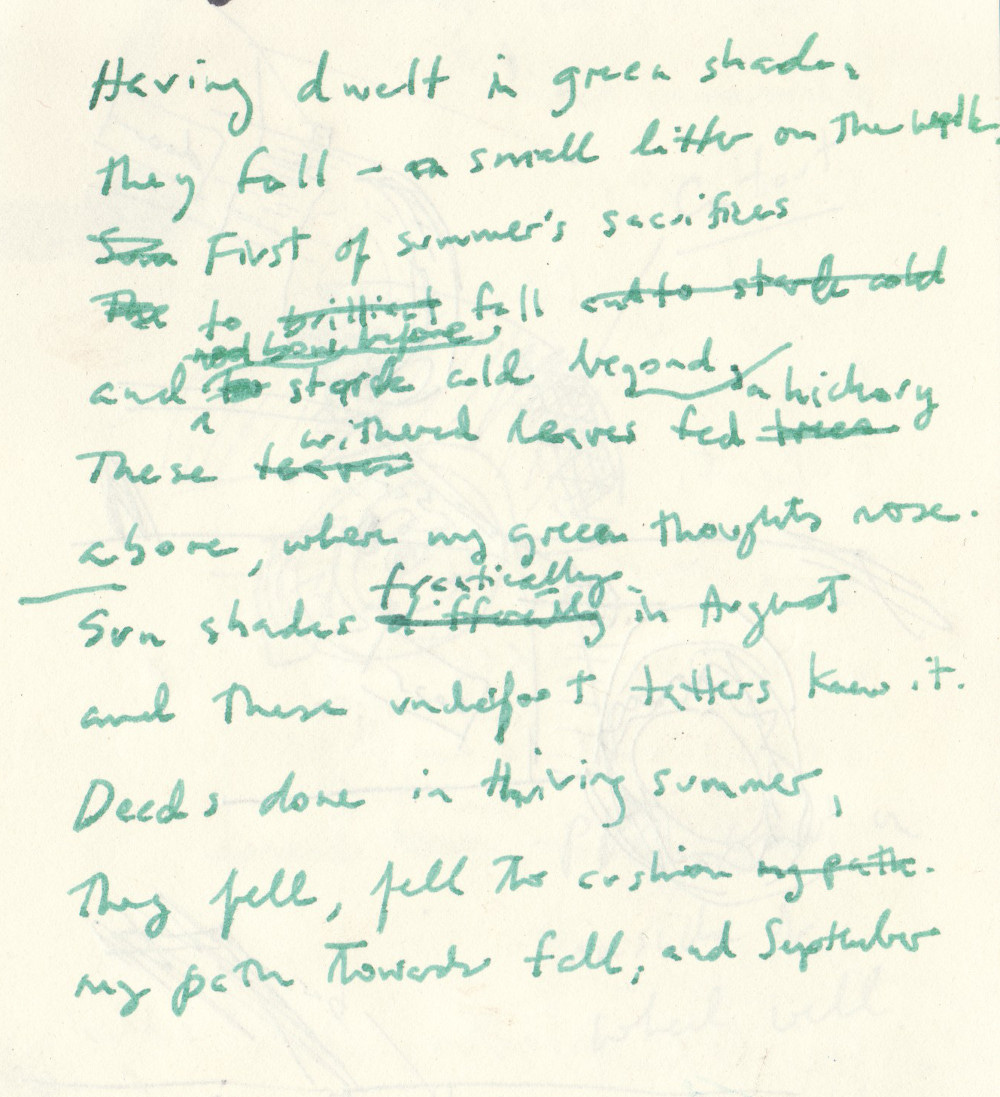 Having dwelt in green shade,
they fall – a small litter on the
First of summer's sacrifices
to brilliant fall and to stark cold
and to stark cold beyond, a hickory
withered
These leaves leaves fed trees
above, where my green thoughts rose.
frantically
Sun shades differently in August
and these underfoot tatters knew it.
Deeds done in thriving summer,
They fell, fell to cushion my path.
my path towards fall, and September